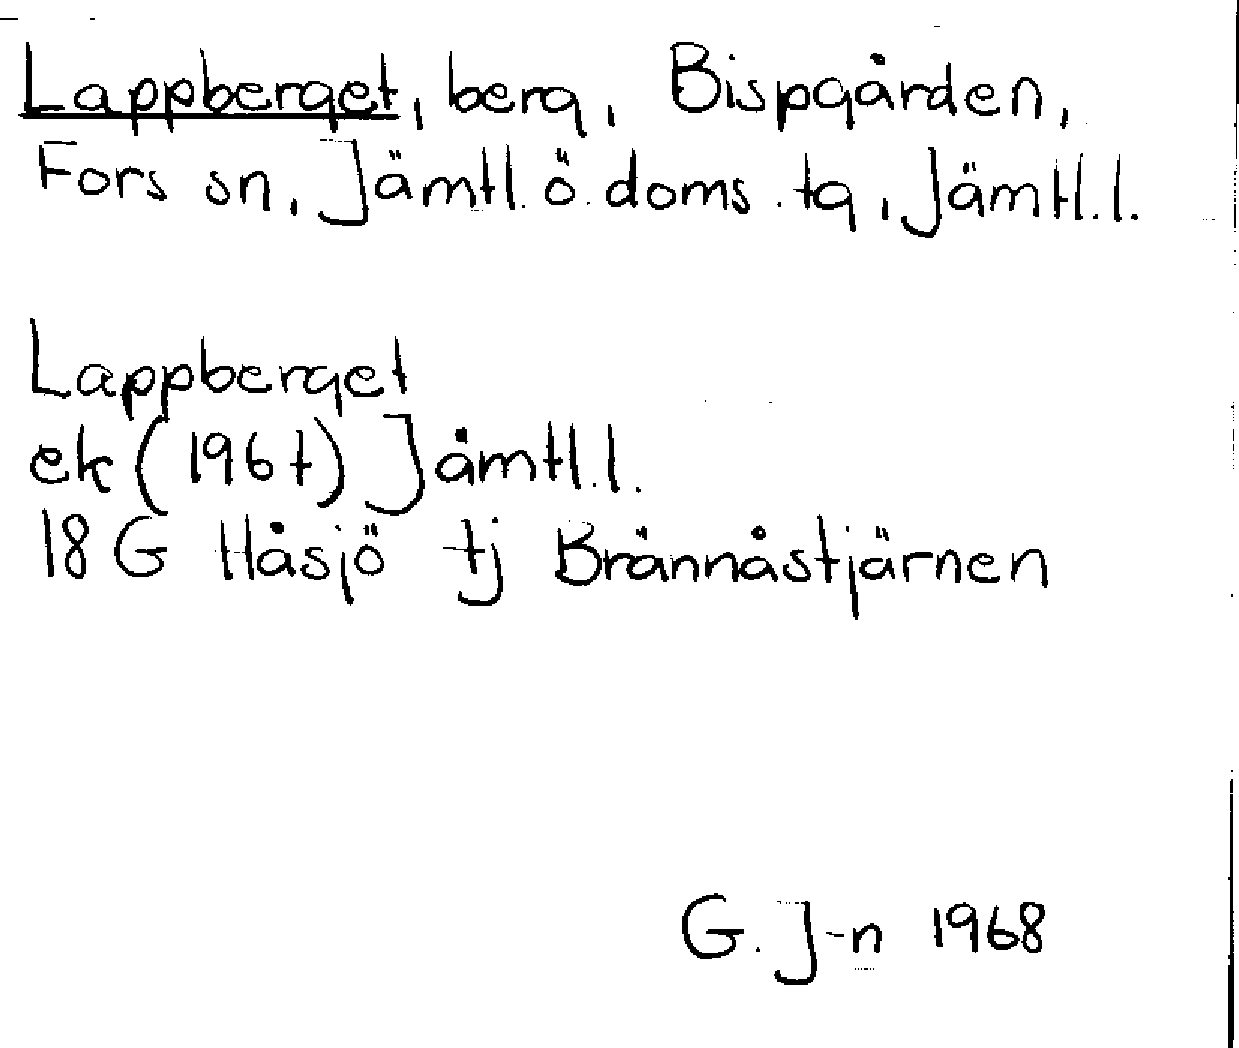 Lappberget, berg, Bispgården,
Fors sn, Jämtl. ö. doms. tg, Jämtl. l.
Lappberget
ek (1967) Jämtl. l.
18 G Håsjö tj Brännåstjärnen
G. J-n 1968